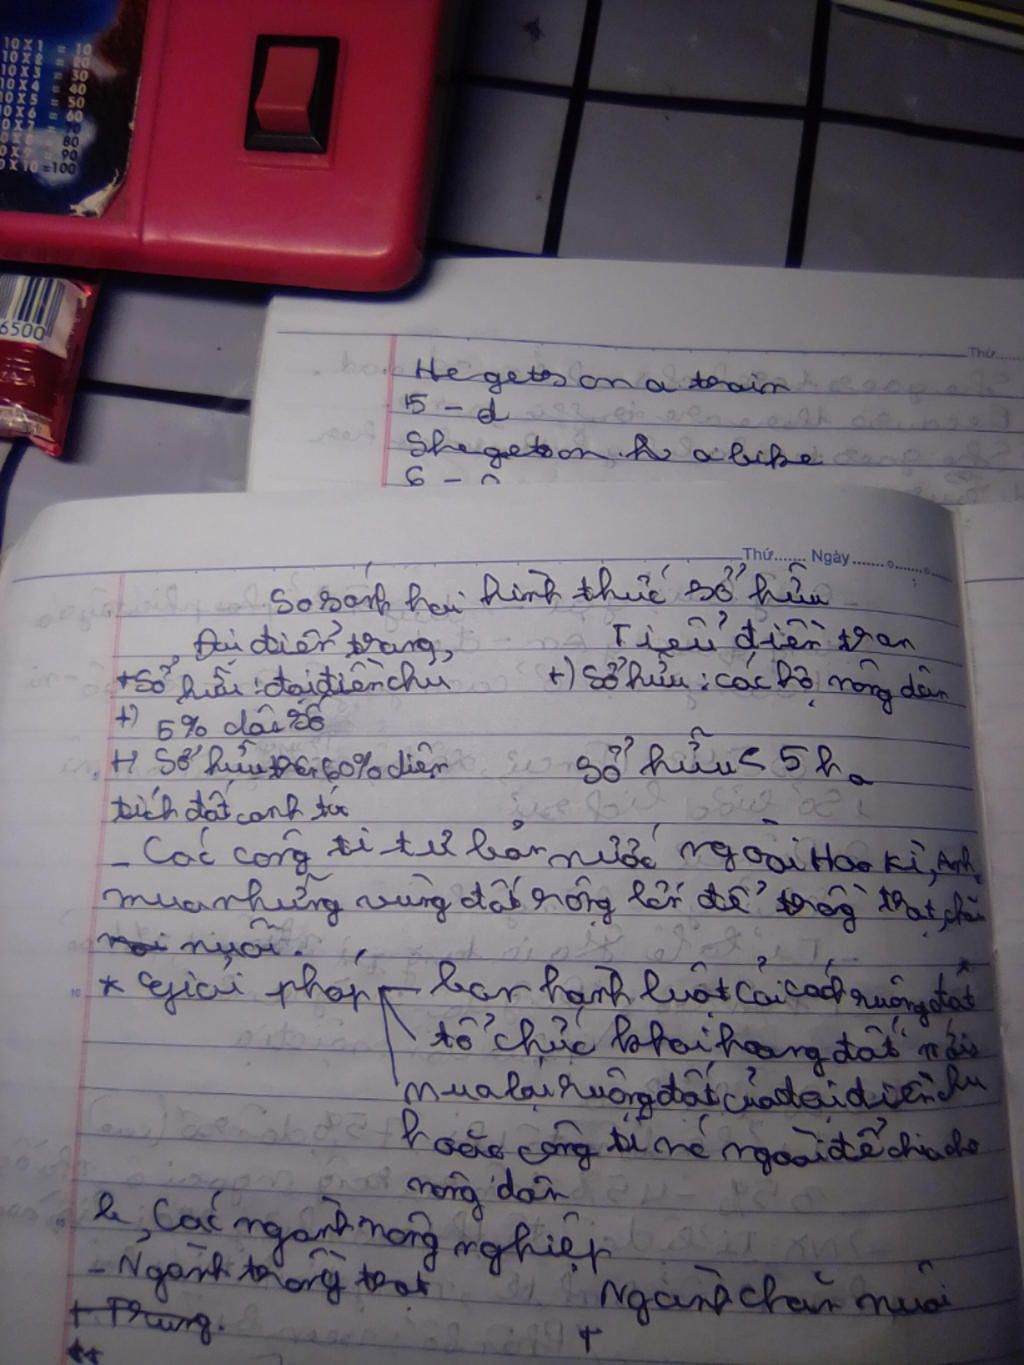 10 X 1 = 10
10 X 2 = 20
10 X 3 = 30
10 X 4 = 40
10 X 5 = 50
10 X 6 = 60
0 X 7 = 70
0 X 8 = 80
0 X 9 = 90
0 X 10 =100
6500
Thứ.....
He gets on a train
5 - d
She gets on a bike
6 -
Thứ....... Ngày
So sánh hai hình thức sở hữu
Đại điền trang,
Tiểu điền tran
+ Sở hữu : đại điền chủ
+) Sở hữu : các hộ nông dân
+) 5% dân số
+) Sở hữu 60% diện
Sở hữu < 5 ha
tích đất canh tác
- Các công ti tư bản nước ngoài Hoa Kì, Anh
mua những vùng đất rộng lớn để trồng trọt, chăn
nuôi.
* Giải pháp - ban hành luật cải cách ruộng đất
tổ chức khai hoang đất mới
mua lại ruộng đất của đại điền chủ
hoặc công ti nc ngoài để chia cho
nông dân
10
15
b, Các ngành nông nghiệp
- Ngành trồng trọt
Ngành chăn nuôi
+ Trung.
+